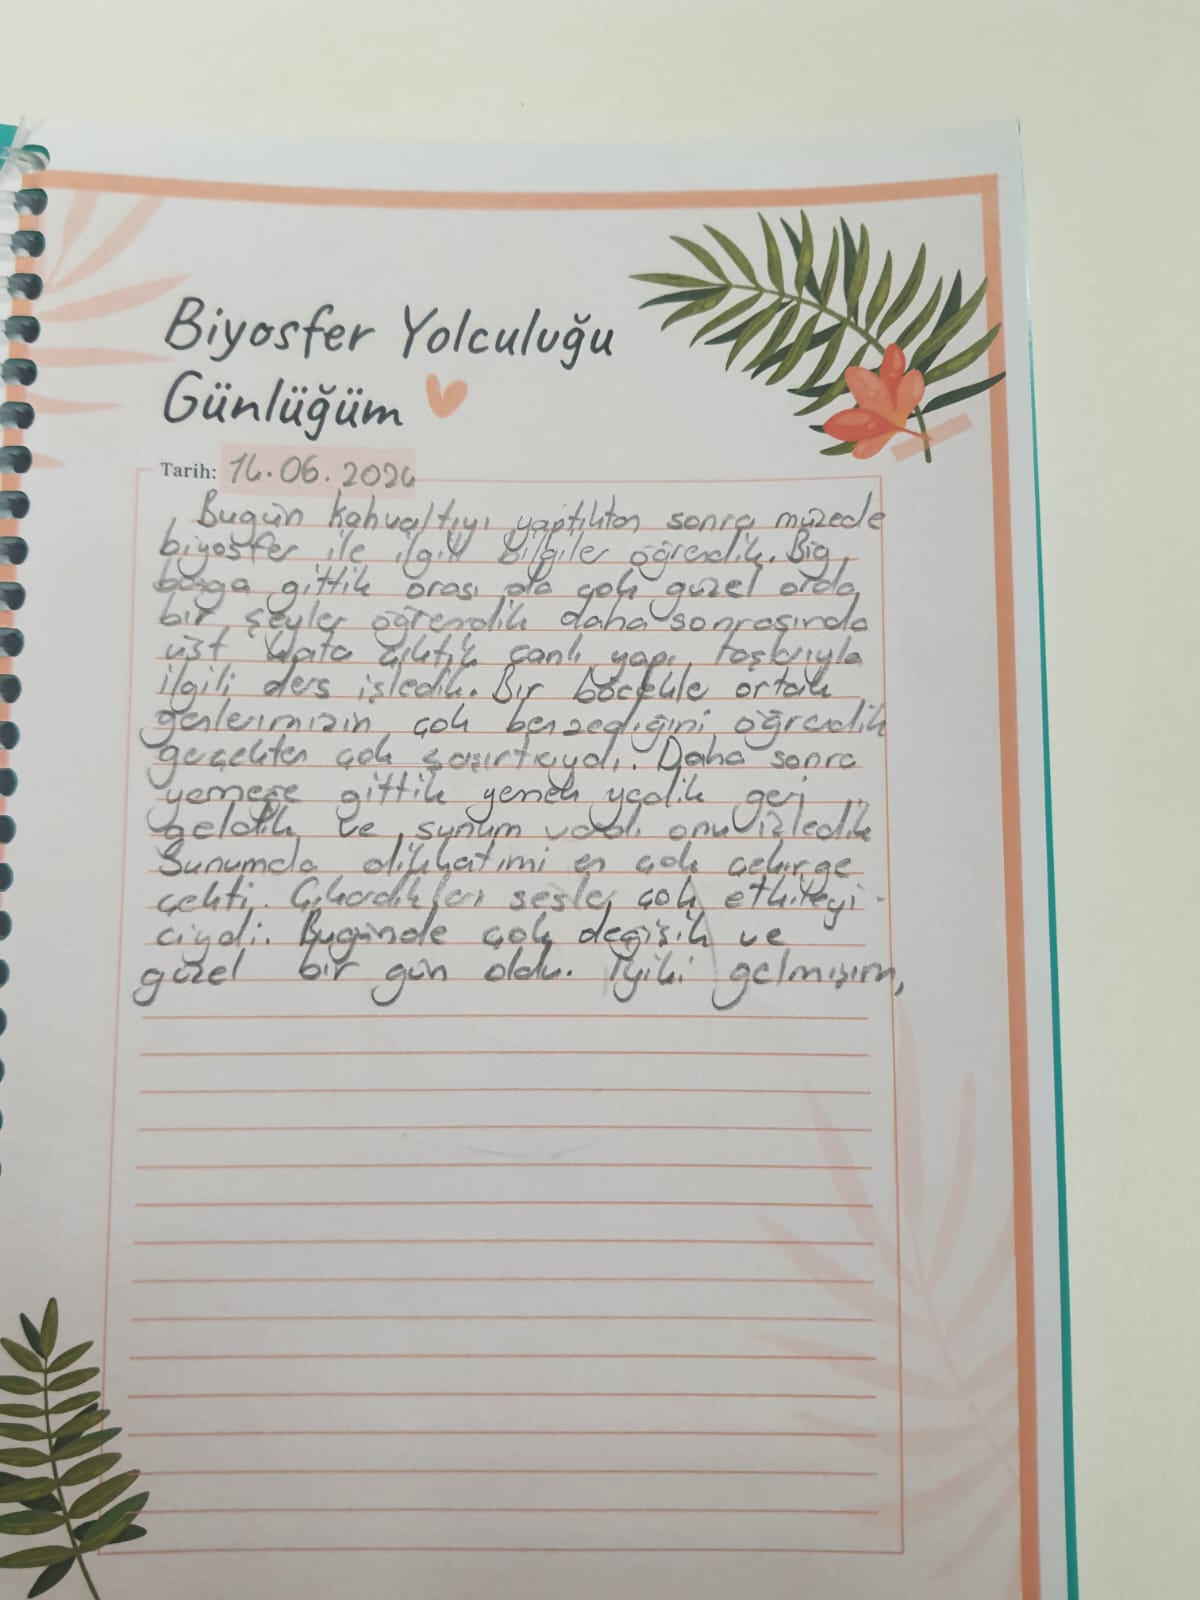 Biyosfer Yolculuğu
Günlüğüm
Tarih: 14.06.2024
Bugün kahvaltıyı yaptıktan sonra müzede
biyosfer ile ilgili bilgiler öğrendik. Big
banga gittik orası da çok güzel orda
bir şeyler öğrendik daha sonrasında
üst kata çıktık canlı yapı taşlarıyla
ilgili ders işledik. Bir böcekle ortak
genlerimizin çok benzediğini öğrendik
geçekten çok şaşırtıcıydı. Daha sonra
yemeğe gittik yemek yedik geri
geldik ve sunum vardı onu izledik
Sunumda dikkatimi en çok çekirge
çekti. Çıkardıkları sesler çok etkileyi-
ciydi. Bugünde çok değişik ve
güzel bir gün oldu. İyiki gelmişim,